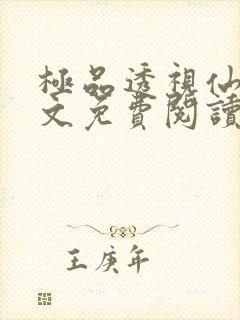 極品透視仙
文免費閱讀
王庚年